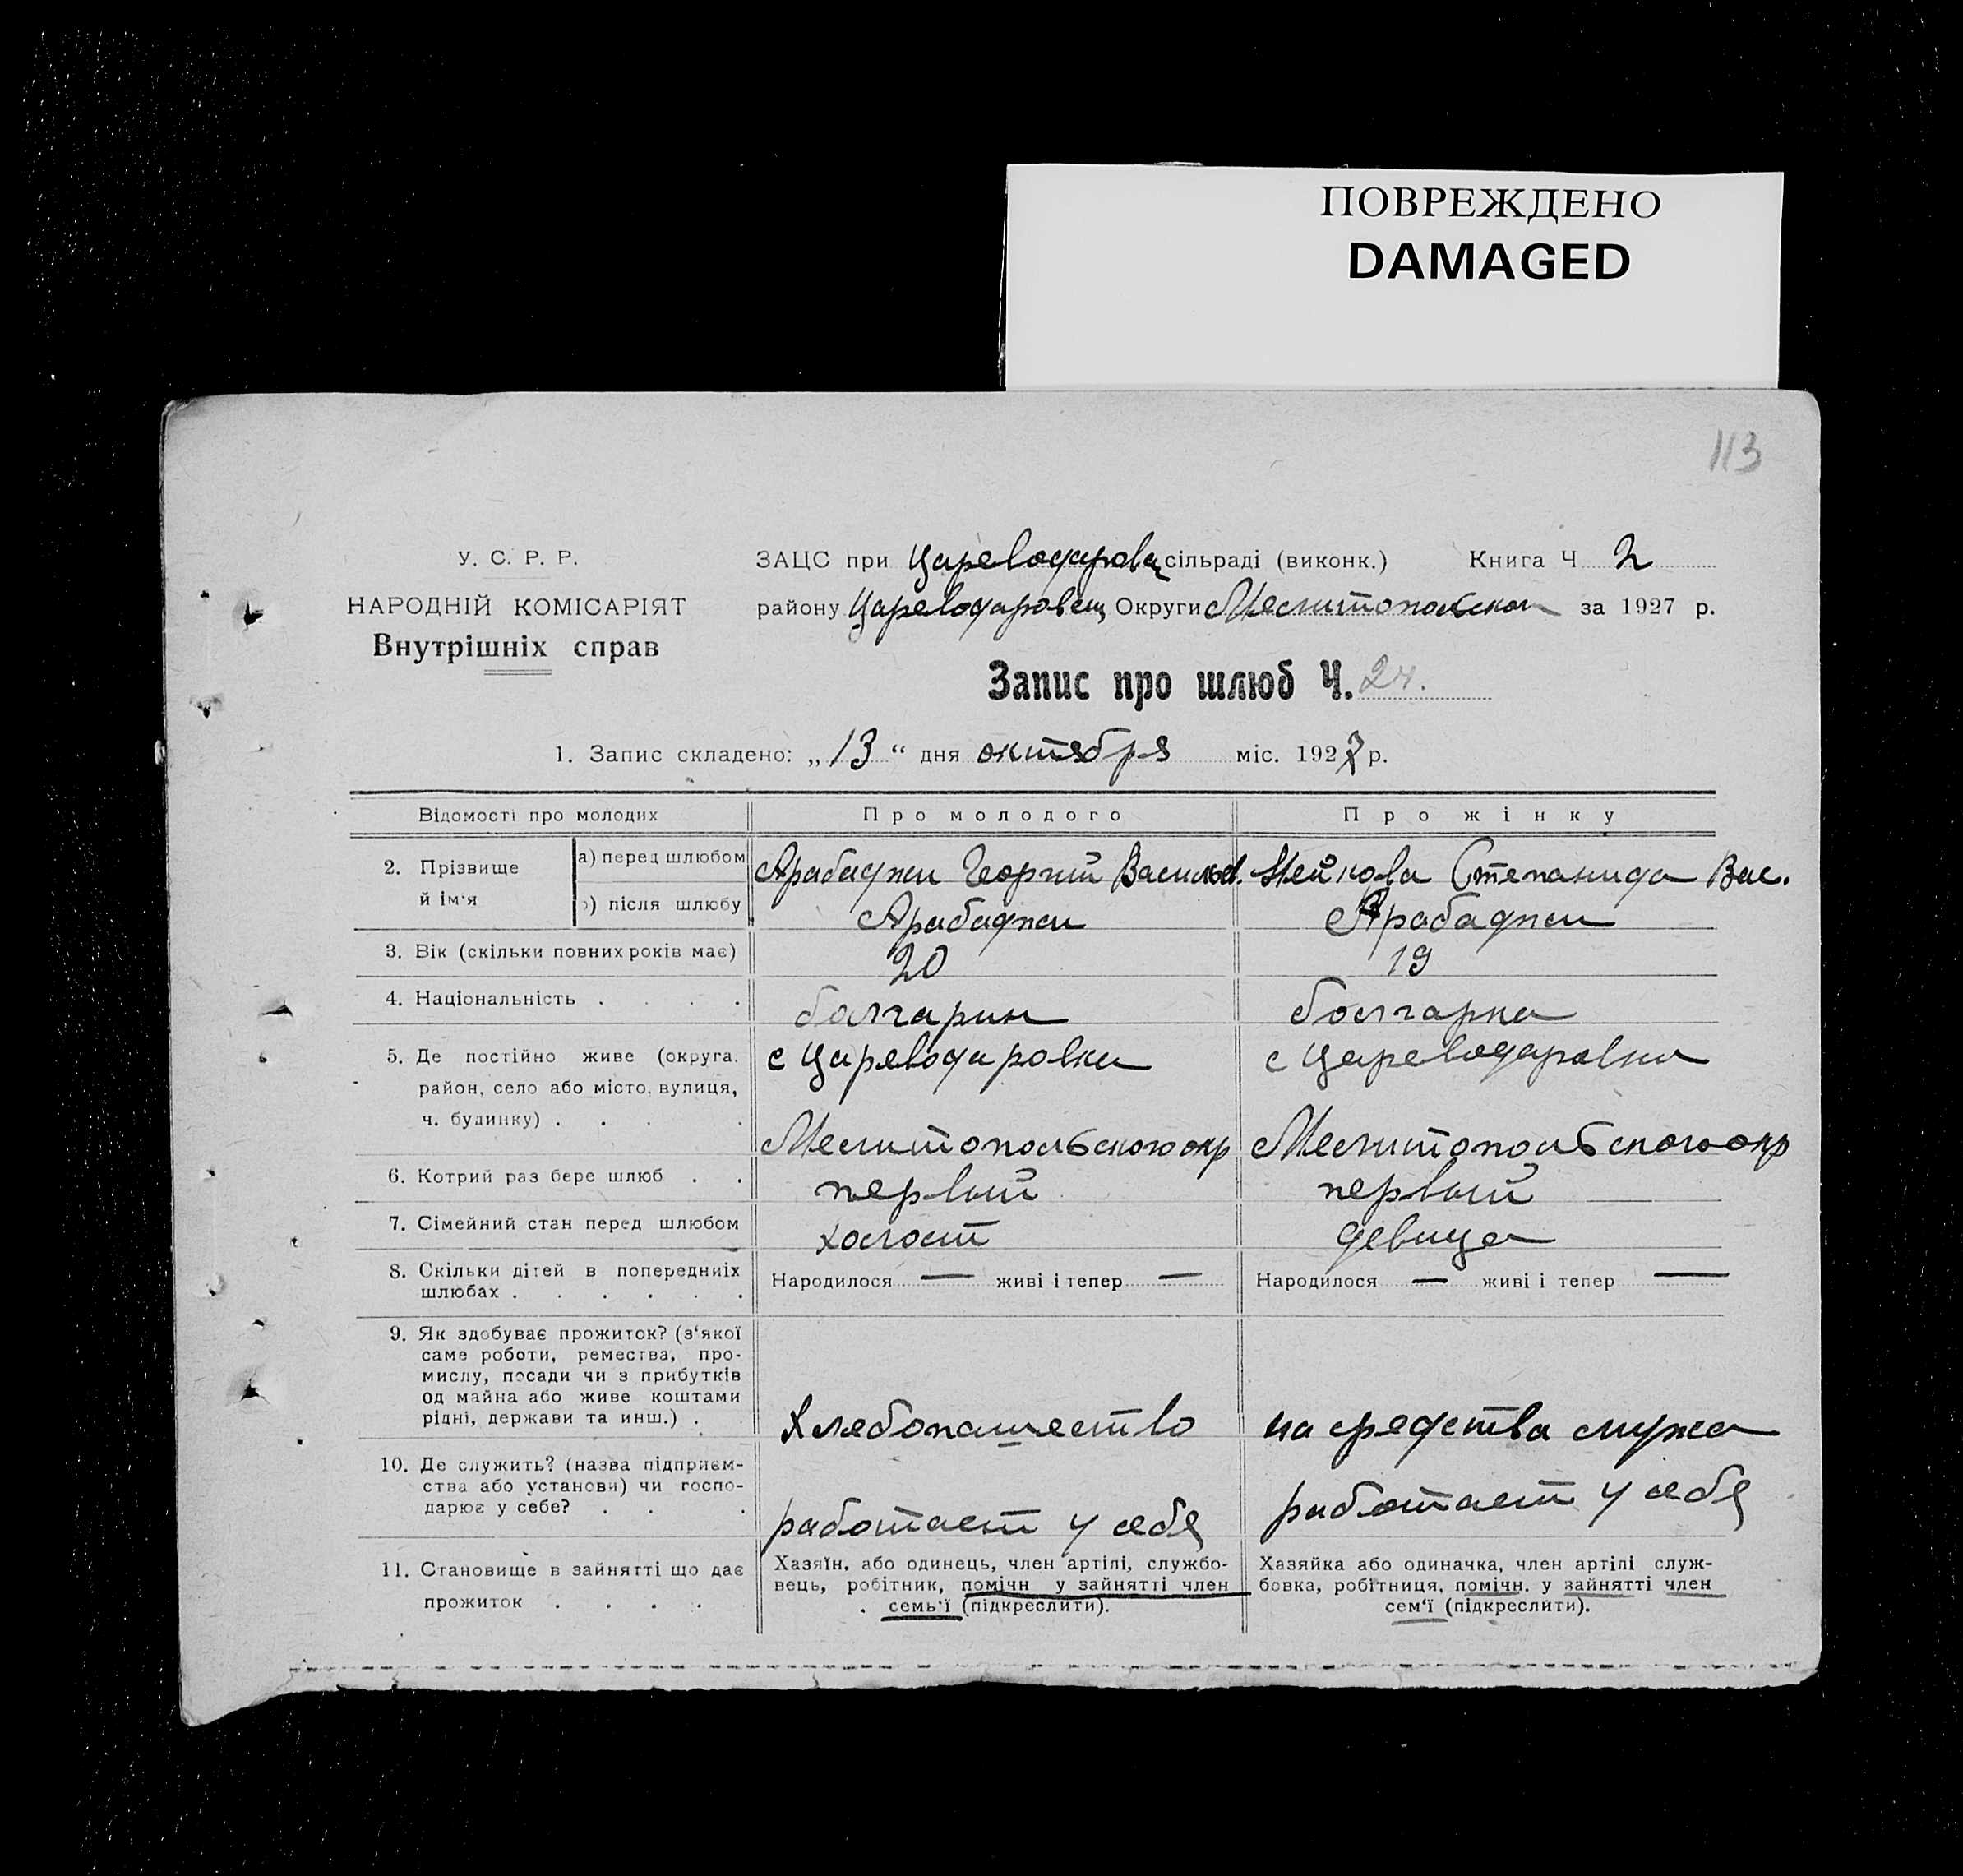 ПОВРЕЖДЕНО
DAMAGED
113
У. С. Р. Р.
НАРОДНІЙ КОМІСАРІЯТ
Внутрішніх справ
ЗАЦС при Цареводаровск сільраді (виконк.) Книга Ч 2
району Цареводаровск Округи Мелитопольской за 1927 р.
Запис про шлюб Ч. 24.
1. Запис складено: „13“ дня октября міс. 1927 р.
Відомості про молодих Про молодого Про жінку
2. Прізвище й ім'я
а) перед шлюбом Арабаджи Георгий Васильев. Нейкова Степанида Вас.
б) після шлюбу Арабаджи Арабаджи
3. Вік (скільки повних років має) 20 19
4. Національність . . . . болгарин болгарка
5. Де постійно живе (округа, с Цареводаровка с Цареводаровки
район, село або місто, вулиця,
ч. будинку) . . . . Мелитопольского окр Мелитопольского окр
6. Котрий раз бере шлюб . . первый первый
7. Сімейний стан перед шлюбом холост девица
8. Скільки дітей в попередниіх Народилося — живі і тепер — Народилося — живі і тепер —
шлюбах . . . . . .
9. Як здобуває прожиток? (з'якої
саме роботи, ремества, про-
мислу, посади чи з прибутків
од майна або живе коштами
рідні, держави та инш.) . Хлебопашество на средства мужа
10. Де служить? (назва підприєм-
ства або установи) чи госпо-
дарює у себе? . . . работает у себя работает у себя
11. Становище в зайнятті що дає
прожиток . . . .
Хазяїн, або одинець, член артілі, службо-
вець, робітник, помічн у зайнятті член
семь'ї (підкреслити).
Хазяйка або одиначка, член артілі служ-
бовка, робітниця, помічн. у зайнятті член
сем'ї (підкреслити).